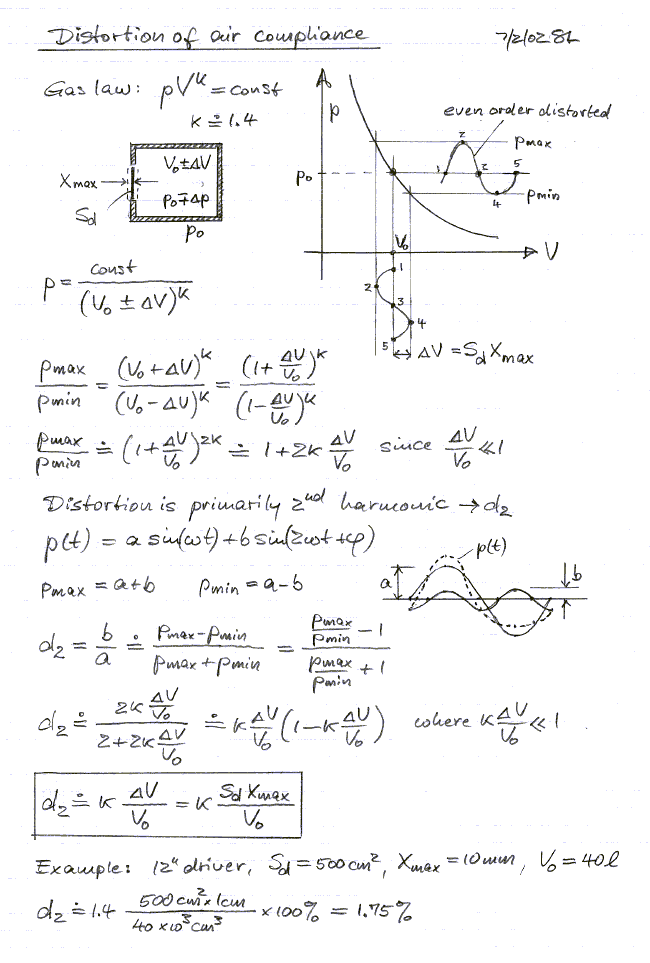 Distortion of air compliance 7/2/02 SL
Gas law: pV^k = const
k ≐ 1.4
V₀ ± ΔV
Xmax
p₀ ∓ Δp
Sd
p₀
p
even order distorted
pmax
p₀
1 2 2 4 5
pmin
V₀
V
1
2
3
4
5
ΔV = Sd Xmax
p = const / (V₀ ± ΔV)^k
pmax / pmin = (V₀ + ΔV)^k / (V₀ - ΔV)^k = (1 + ΔV/V₀)^k / (1 - ΔV/V₀)^k
pmax / pmin ≐ (1 + ΔV/V₀)^2k ≐ 1 + 2k ΔV/V₀ since ΔV/V₀ ≪ 1
Distortion is primarily 2nd harmonic → d₂
p(t) = a sin(ωt) + b sin(2ωt + φ)
p(t)
pmax = a+b pmin = a-b
a
b
d₂ = b/a ≐ (pmax - pmin) / (pmax + pmin) = (pmax/pmin - 1) / (pmax/pmin + 1)
d₂ ≐ (2k ΔV/V₀) / (2 + 2k ΔV/V₀) ≐ k ΔV/V₀ (1 - k ΔV/V₀) where k ΔV/V₀ ≪ 1
d₂ ≐ k ΔV/V₀ = k Sd Xmax / V₀
Example: 12" driver, Sd = 500 cm², Xmax = 10 mm, V₀ = 40 l
d₂ ≐ 1.4 (500 cm² x 1cm) / (40 x 10³ cm³) x 100% = 1.75%